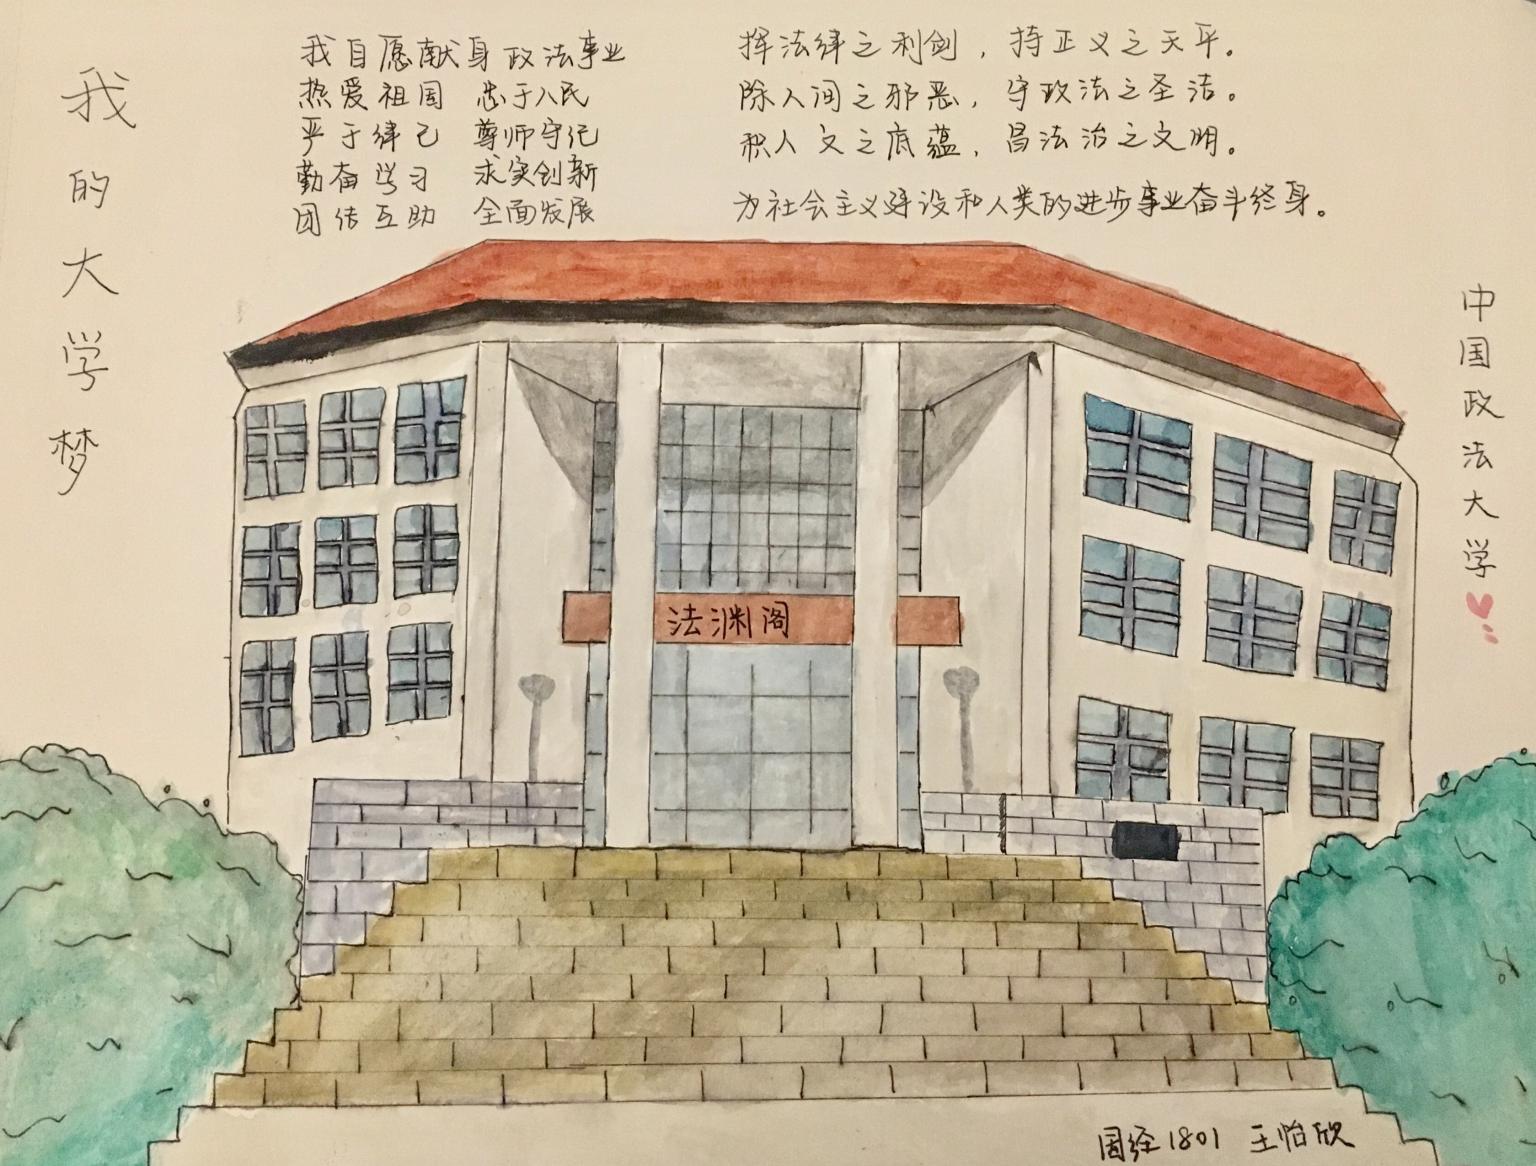 我的大学梦
我自愿献身政法事业
热爱祖国 忠于人民
严于律己 尊师守纪
勤奋学习 求实创新
团结互助 全面发展
挥法律之利剑，持正义之天平。
除人间之邪恶，守政法之圣洁。
积人文之底蕴，昌法治之文明。
为社会主义建设和人类的进步事业奋斗终身。
中国政法大学
法渊阁
国经1801 王怡欣